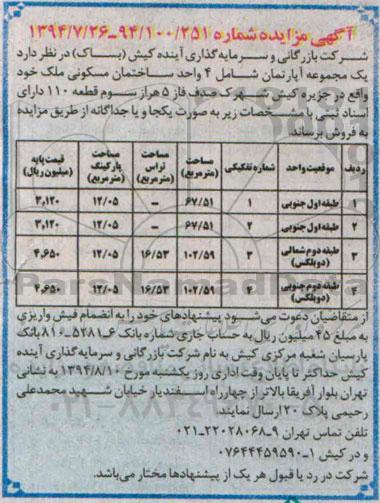 آگهی مزایده شماره ۹۴/۱۰۰/۲۵۱-۱۳۹۴/۷/۲۶
شرکت بازرگانی و سرمایه‌گذاری آینده کیش (بساک) در نظر دارد
یک مجموعه آپارتمان شامل ۴ واحد ساختمان مسکونی ملک خود
واقع در جزیره کیش شهرک صدف فاز ۵ هراز سوم قطعه ۱۱۰ دارای
اسناد ثبتی با مشخصات زیر به صورت یکجا و یا جداگانه از طریق مزایده
به فروش برساند.
ردیف موقعیت واحد شماره تفکیکی مساحت (مترمربع) مساحت تراس (مترمربع) مساحت پارکینگ (مترمربع) قیمت پایه (میلیون ریال)
۱ طبقه اول جنوبی ۱ ۶۷/۵۱ – ۱۲/۰۵ ۳,۱۲۰
۲ طبقه اول جنوبی ۲ ۶۷/۵۱ – ۱۲/۰۵ ۳,۱۲۰
۳ طبقه دوم شمالی (دوبلکس) ۳ ۱۰۲/۵۹ ۱۶/۵۳ ۱۲/۰۵ ۴,۶۵۰
۴ طبقه دوم جنوبی (دوبلکس) ۴ ۱۰۲/۵۹ ۱۶/۵۳ ۱۲/۰۵ ۴,۶۵۰
از متقاضیان دعوت می‌شود پیشنهادهای خود را به انضمام فیش واریزی
به مبلغ ۴۵ میلیون ریال به حساب جاری شماره بانک ۶-۸۱۰۵۲۸۱ بانک
پارسیان شعبه مرکزی کیش به نام شرکت بازرگانی و سرمایه‌گذاری آینده
کیش حداکثر تا پایان وقت اداری روز یکشنبه مورخ ۱۳۹۴/۸/۱۰ به نشانی
تهران بلوار آفریقا بالاتر از چهارراه اسفندیار خیابان شهید محمدعلی
رحیمی پلاک ۲۰ ارسال نمایند.
تلفن تماس تهران ۹-۲۲۰۲۸۰۶۸-۰۲۱
و در کیش ۱-۰۷۶۴۴۴۵۹۵۹۰
شرکت در رد یا قبول هر یک از پیشنهادها مختار می‌باشد.